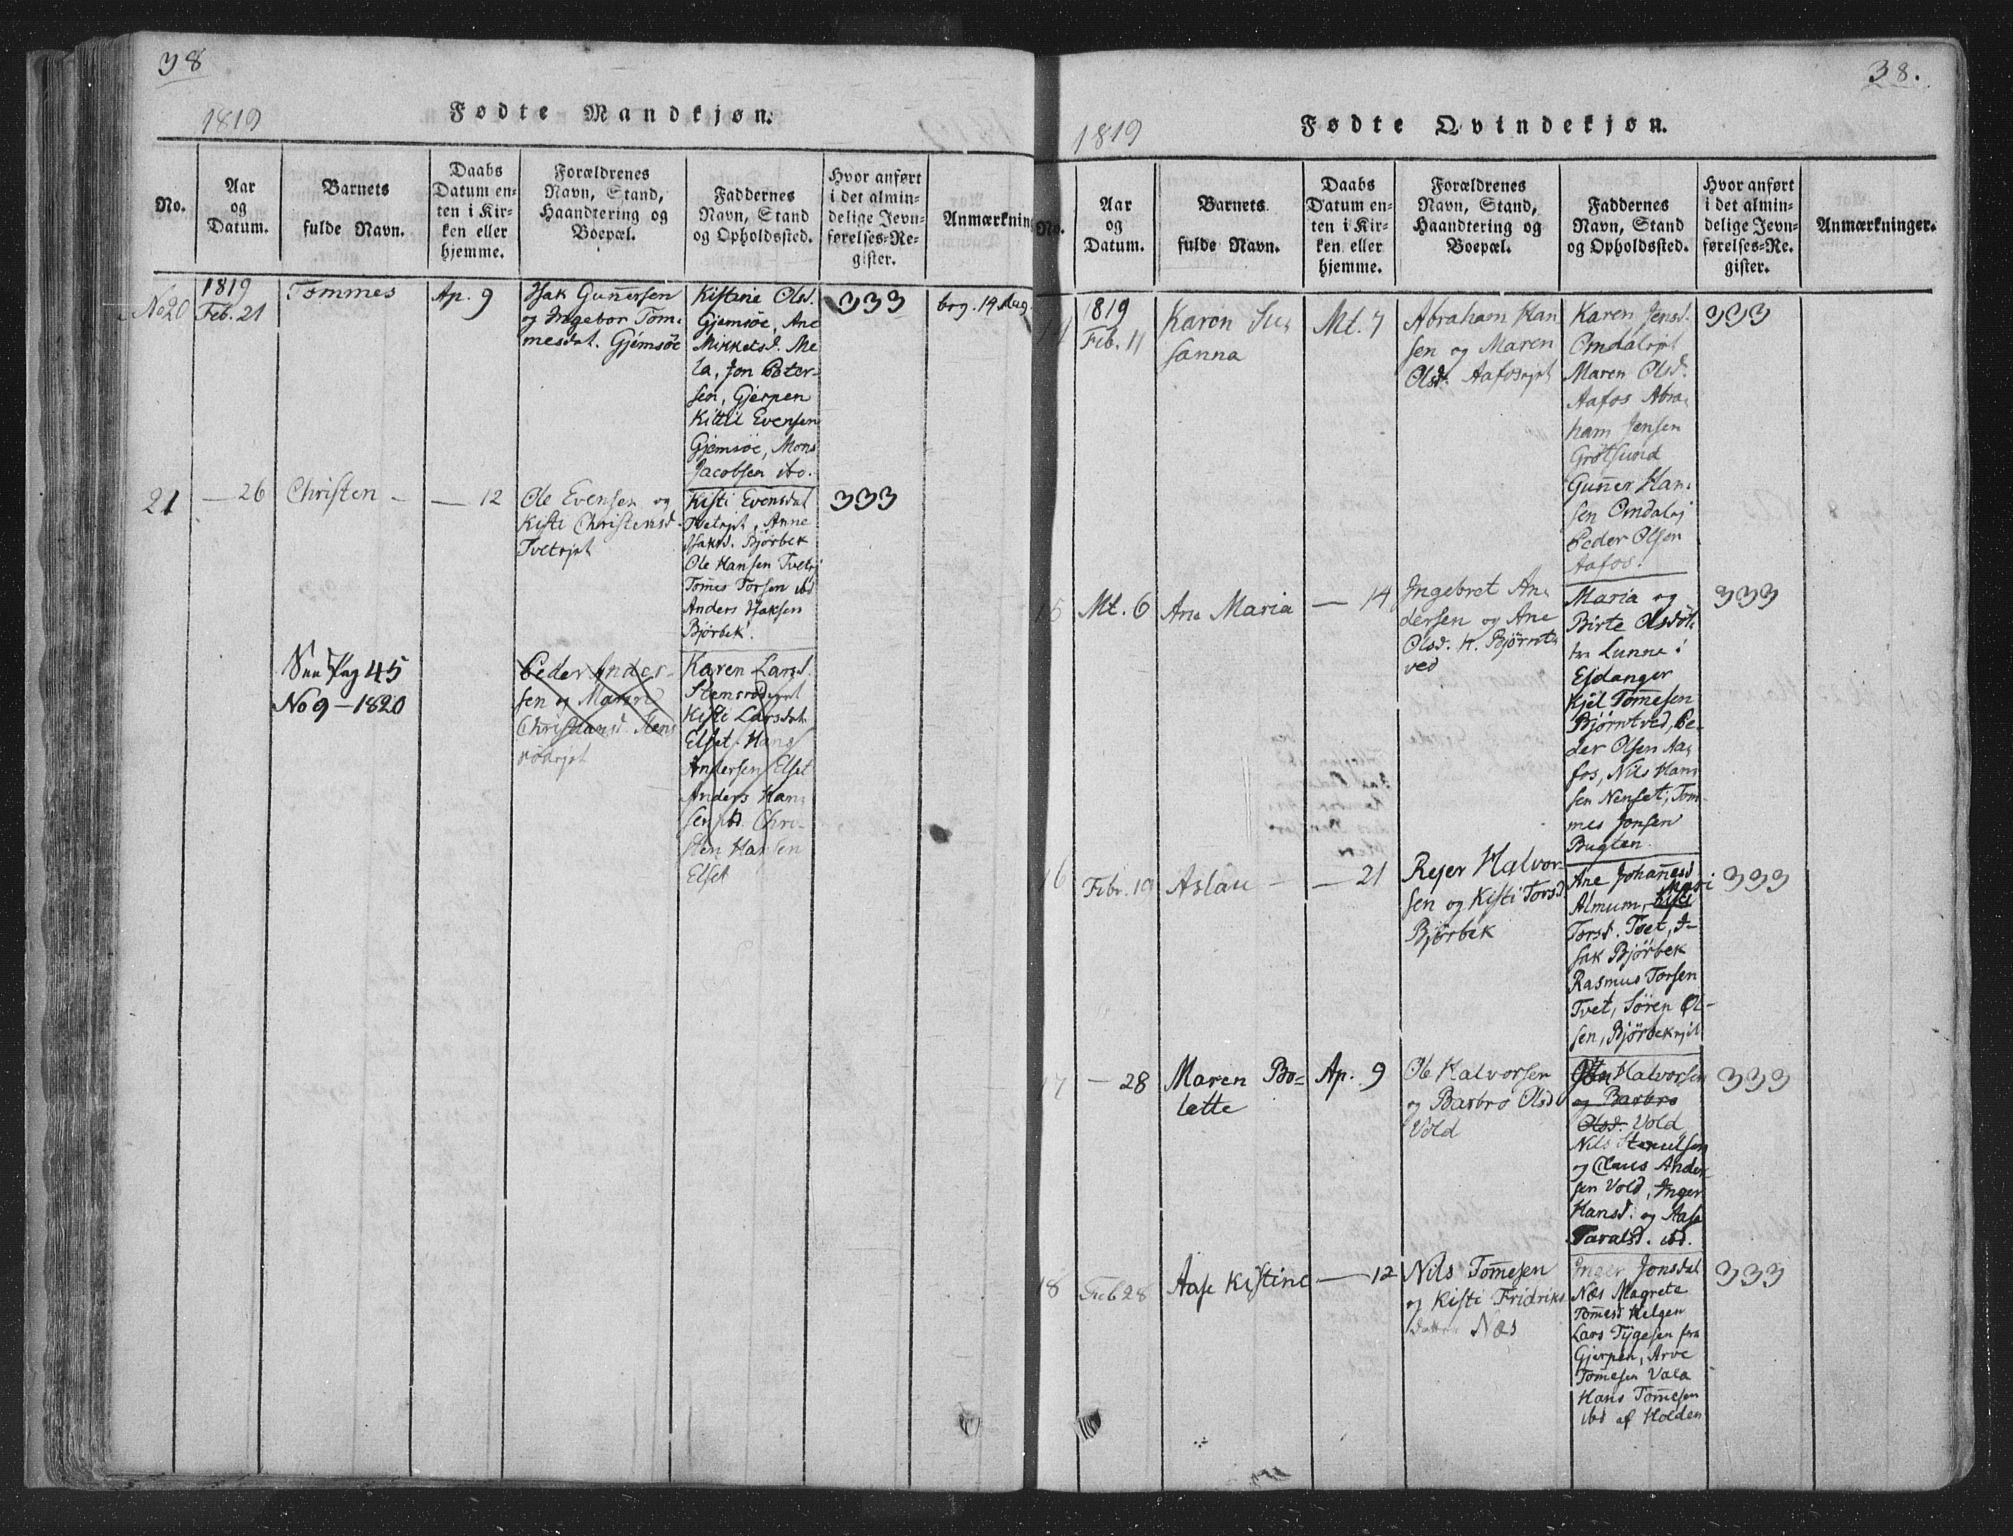 38
1819
Fødte Mandkjøn.
No.
Aar
og
Datum.
Barnets
fulde Navn.
Daabs
Datum en-
ten i Kir-
ken eller
hjemme.
Forældrenes
Navn, Stand,
Haandtering og
Boepæl.
Faddernes
Navn, Stand
og Opholdssted.
Hvor anført
i det almin-
delige Jevn-
førelses-Re-
gister.
Anmærkning
No 20
1819
Feb. 21
Tommes
Ap. 9
Isak Gunnersen
og Ingebor Tom-
mesdat. Gjemsøe
Kistine Olsd.
Gjemsøe, Ane
Mikkelsd. Me
la, Jon Peter-
sen, Gjerpen
Kittil Evensen
Gjemsøe, Mons
Jacobsen ibo.
333
beg. 14 Aug
21
— 26
Christen —
— 12
Ole Evensen og
Kisti Christensd.
Tvetejet
Kisti Evensdat
Tvetejet, Anne
Isaksd. Bjørbek
Ole Hansen Tvetej
Tomes Torsen ibd
Anders Isaksen
Bjørbek.
333
See Pag 45
No 9 — 1820
Peder Ander-
sen og Maren
Christiansd. Stens
rødejet
Karen Larsd.
Stensrødejet
Kisti Larsdat
Elset. Hans
Andersen Elset
Anders Han-
sen ibd. Chri-
sten Hansen
Elset
38.
1819
Fødte Qvindekjøn.
No.
Aar
og
Datum.
Barnets
fulde Navn.
Daabs
Datum en-
ten i Kir-
ken eller
hjemme.
Forældrenes
Navn, Stand,
Haandtering og
Boepæl.
Faddernes
Navn, Stand
og Opholdssted.
Hvor anført
i det almin-
delige Jevn-
førelses-Re-
gister.
Anmærkninger.
14
1819
Feb. 11
Karen Su-
sanna
Mt. 7
Abraham Han
sen og Maren
Olsd. Aafosejet
Karen Jensd.
Omdalsejet
Maren Olsd.
Aafos Abra-
ham Jensen
Grøtsund
Gunner Han-
sen Omdalej
Peder Olsen
Aafos.
333
15
Mt. 6
Ane Maria
— 14
Ingebret An-
dersen og Ane
Olsd. H. Bjørnt-
ved
Maria og
Birte Olsdøt-
tre Lunne i
Eidanger
Kjel Tomesen
Bjørntved, Pe-
der Olsen Aa-
fos, Nils Han-
sen Nenset, Tom-
mes Jonsen
Bugten.
333
16
Febr. 10
Aslau —
— 21
Rejer Halvor-
sen og Kisti Torsd.
Bjørbek
Ane Johannesd
Almum, Kisti Mari
Torsd. Tvet, I-
sak Bjørbek
Rasmus Torsen
Tvet, Søren Ol-
sen, Bjørbekejet
333
17
— 28
Maren Bo-
lette
Ap. 9
Ole Halvorsen
og Barbro Olsd
Vold
Halvorsen
og Barbro
Olsd. Vold
Nils Stenulsen
og Claus Ander
sen Vold, Inger
Hansd. og Aase
Taralsd. ibd.
333
18
Feb 28
Aase Kistine
— 12
Nils Tomesen
og Kisti Fridriks
datter Næs
Inger Jonsdat
Næs Magrete
Tomesd Helgen
Lars Tygesen fra
Gjerpen, Arve
Tomesen Vala
Hans Tomesen
ibd af Holden
333